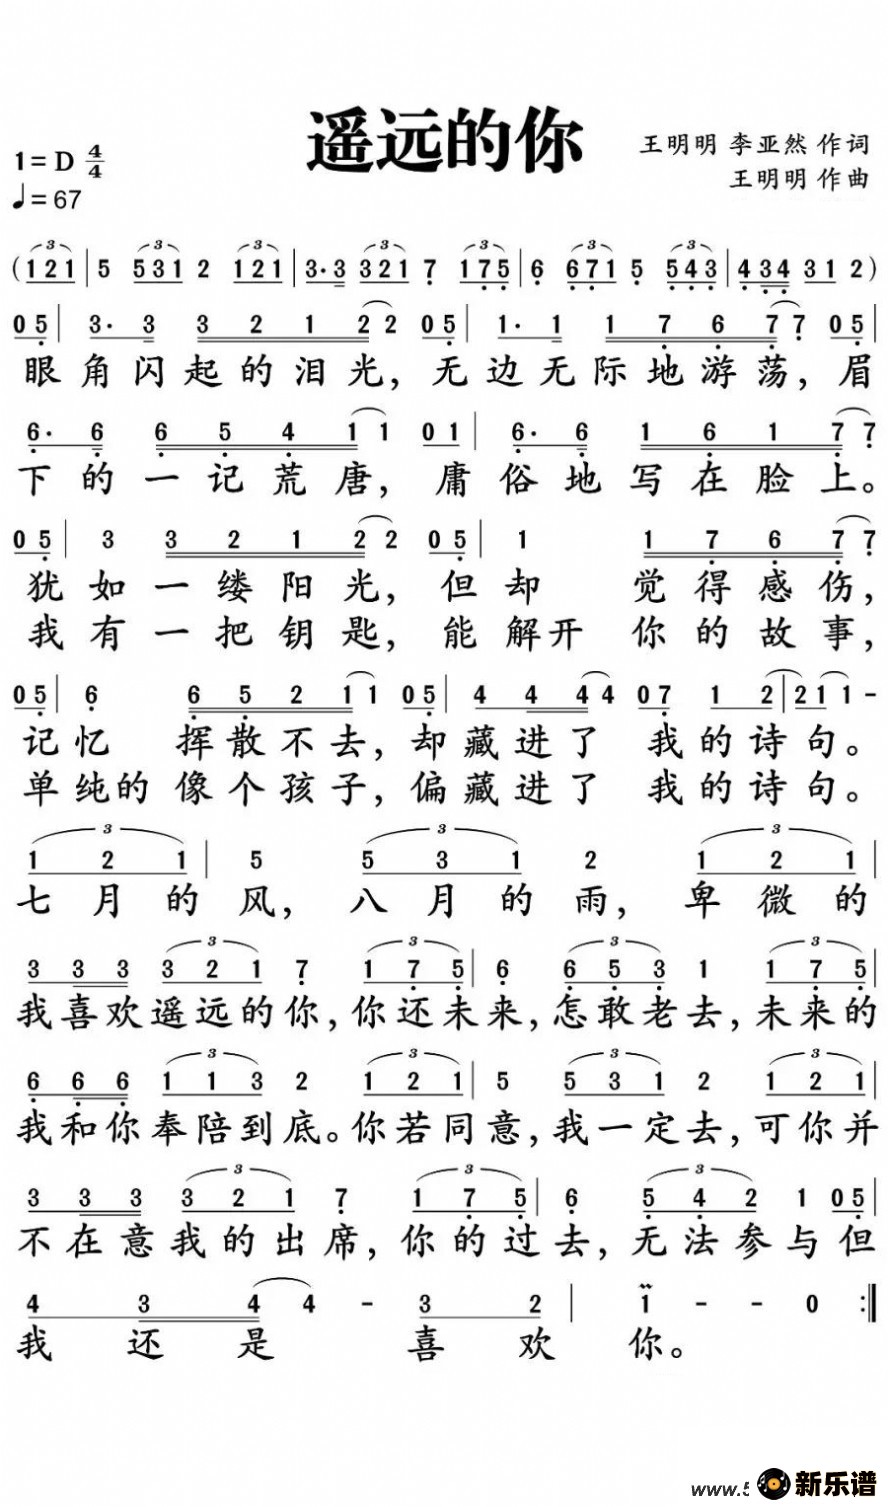 遥远的你
1=D 4/4
王明明 李亚然 作词
♩=67
王明明 作曲
(121 | 5 531 2 121 | 3·3 321 7 175 | 6 671 5 543 | 434 312)
05 | 3· 3 3 2 1 2 2 05 | 1· 1 1 7 6 7 7 05 |
眼角闪起的泪光,无边无际地游荡,眉
6· 6 6 5 4 1 1 01 | 6· 6 1 6 1 7 7
下的一记荒唐,庸俗地写在脸上。
05 | 3 3 2 1 2 2 05 | 1 1 7 6 7 7
犹如一缕阳光,但却 觉得感伤,
我有一把钥匙,能解开 你的故事,
05 | 6 6 5 2 1 1 05 | 4 4 4 4 07 1 2 | 21 1 -
记忆 挥散不去,却藏进了 我的诗句。
单纯的像个孩子,偏藏进了 我的诗句。
3 3 3
1 2 1 | 5 5 3 1 2 1 2 1 |
七月的风,八月的雨,卑微的
3 3 3 3
3 3 3 3 2 1 7 1 7 5 | 6 6 5 3 1 1 7 5 |
我喜欢遥远的你,你还未来,怎敢老去,未来的
3 3 3 3
6 6 6 1 1 3 2 1 2 1 | 5 5 3 1 2 1 2 1 |
我和你奉陪到底。你若同意,我一定去,可你并
3 3 3
3 3 3 3 2 1 7 1 7 5 | 6 5 4 2 1 05 |
不在意我的出席,你的过去,无法参与但
4 3 4 4 - 3 2 | 1 - - 0 :‖
我还是喜欢你。
www.5
新乐谱